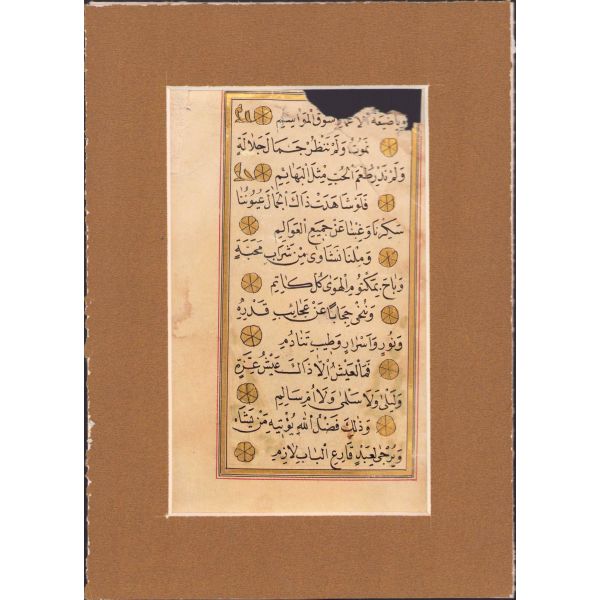 وياضيعة الاعمار سوق المواسم
نموت ولم ننظر جمال جلالة
ولم ندر طعم الحب مثل البهائم
فلو شاهدت ذاك الجمال عيوننا
سكرنا وغبنا عن جميع العوالم
وملنا نشاوى من شراب محبة
وباح بمكتوم الهوى كل كاتم
ونحى حجابا عن عجائب قدره
ونور واسرار وطيب تنادم
فما العيش الا ذاك عيش عزة
وليلى ولا سلمى ولا ام سالم
وذلك فضل الله يؤتيه من يشاء
ويرجى لعبد قارع الباب لازم